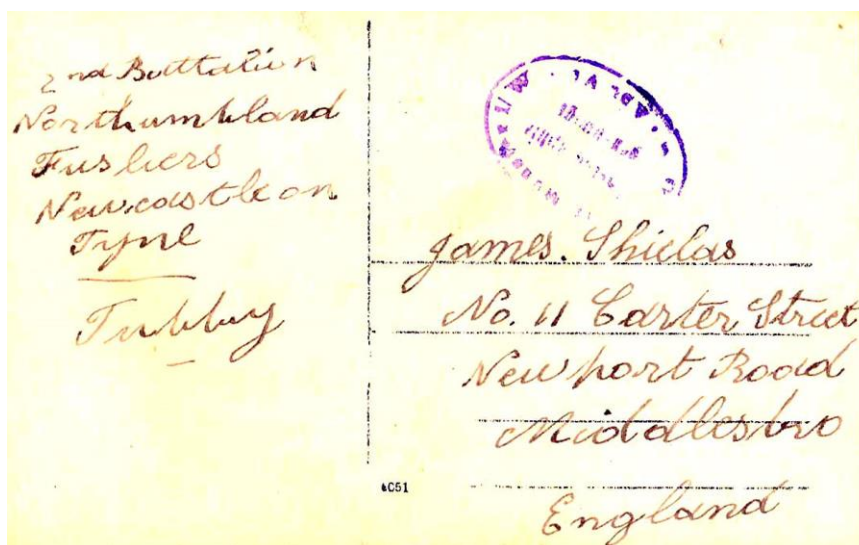 2nd Battalion
Northumbland
Fusliers
Newcastle on
Tyne
Tubby
James. Shields
No. 11 Carter Street
Newport Road
Middlesbro
England
4C51